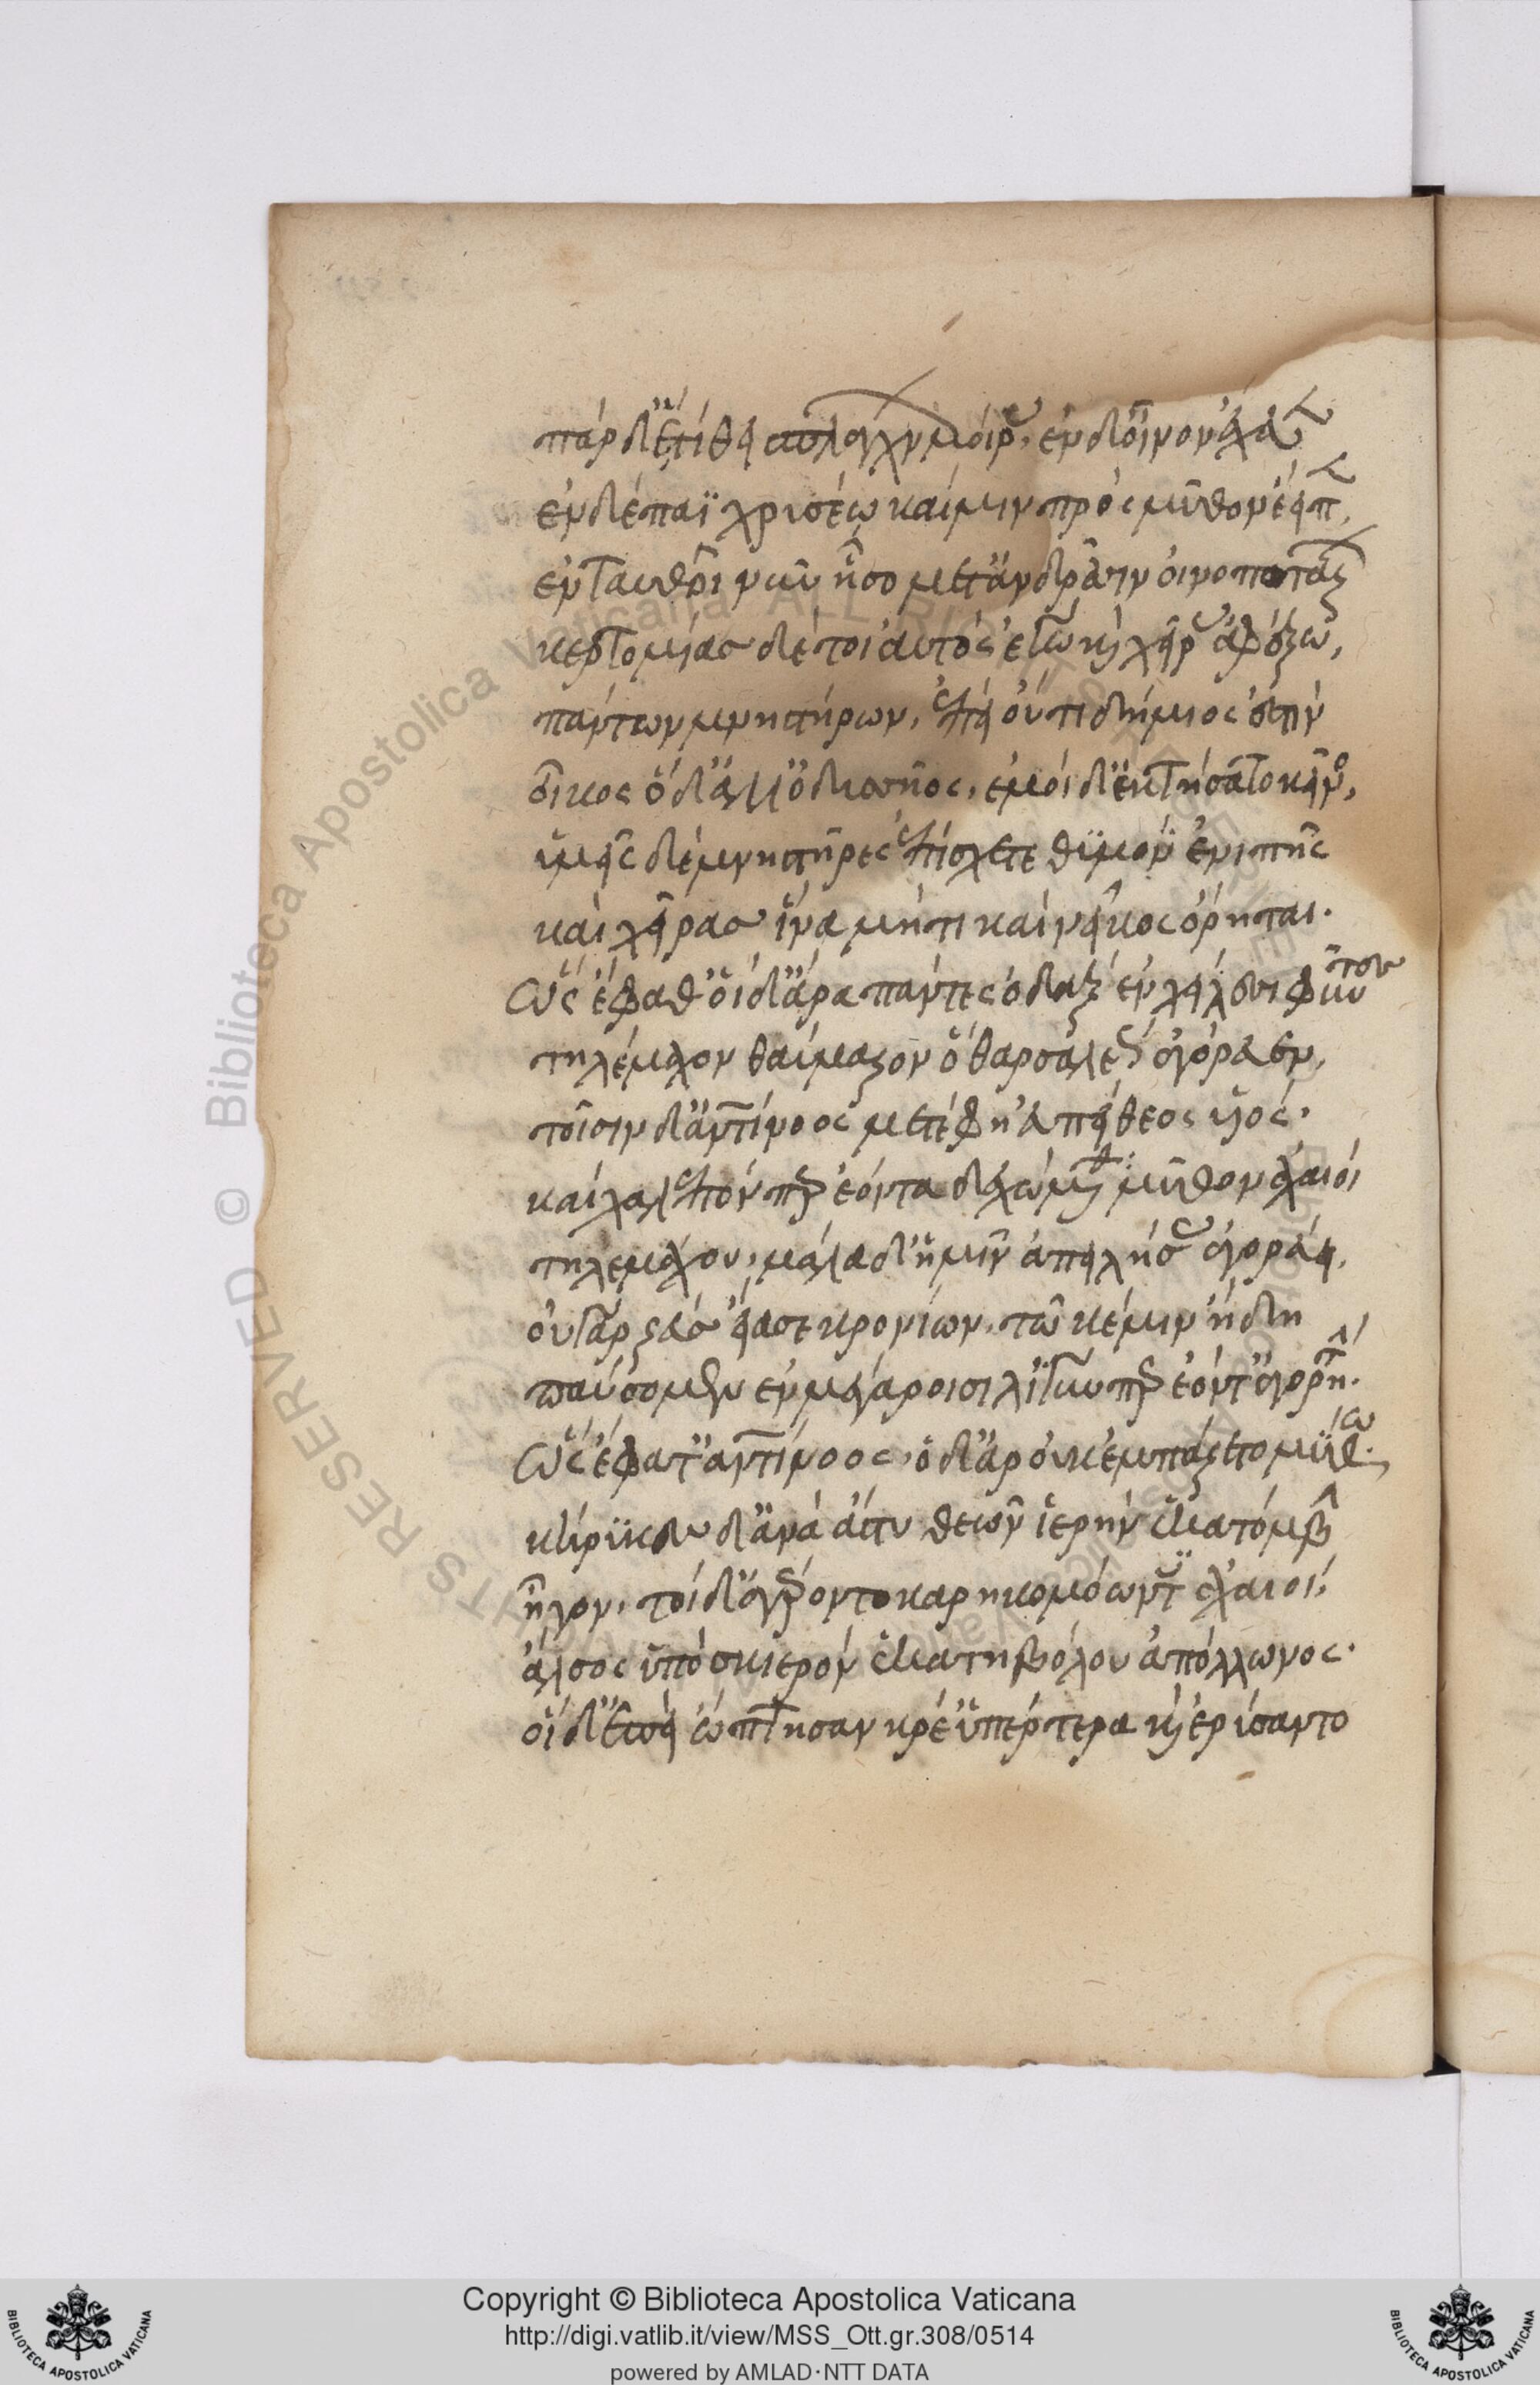 πὰρ δ' ἐτίθει σπλάγχνων μοίρας, ἐν δ' οἶνον ἔχευεν
ἐν δέπαϊ χρυσέω καί μιν πρὸς μῦθον ἔειπεν,
ἐνταυθοῖ νῦν ἧσο μετ' ἀνδράσιν οἰνοποτάζων
κερτομίας δέ τοι αὐτὸς ἐγὼ καὶ χεῖρας ἀφέξω,
πάντων μνηστήρων, ἐπεὶ οὔ τι δήμιός ἐστιν
οἶκος ὅδ' ἀλλ' ὀδυσῆος, ἐμοὶ δ' ἐκτήσατο κεῖνος,
ὑμεῖς δὲ μνηστῆρες ἐπίσχετε θυμὸν ἐνιπῆς
καὶ χειρῶν ἵνα μή τι καὶ νεῖκος ὄρηται.
Ὣς ἔφαθ' οἱ δ' ἄρα πάντες ὀδὰξ ἐν χείλεσι φῦντες
τηλέμαχον θαύμαζον ὃ θαρσαλέως ἀγόρευεν,
τοῖσιν δ' ἀντίνοος μετέφη εὐπείθεος υἱός.
καὶ χαλεπόν περ ἐόντα δεχώμεθα μῦθον ἀχαιοὶ
τηλεμάχου, μάλα δ' ἡμῖν ἀπειλήσας ἀγορεύει.
οὐ γὰρ ζεὺς εἴασε κρονίων, τῶ κέ μιν ἤδη
παύσαμεν ἐν μεγάροισι λιγύν περ ἐόντ' ἀγορητήν.
Ὣς ἔφατ' ἀντίνοος, ὁ δ' ἄρ' οὐκ ἐμπάζετο μύθων.
κήρυκες δ' ἀνὰ ἄστυ θεῶν ἱερὴν ἑκατόμβην
ἦγον, τοὶ δ' ἀγέροντο καρηκομόωντες ἀχαιοί,
ἄλσος ὕπο σκιερὸν ἑκατηβόλου ἀπόλλωνος.
οἱ δ' ἐπεὶ ὤπτησαν κρέ' ὑπέρτερα καὶ ἐρύσαντο
Copyright © Biblioteca Apostolica Vaticana
http://digi.vatlib.it/view/MSS_Ott.gr.308/0514
powered by AMLAD·NTT DATA